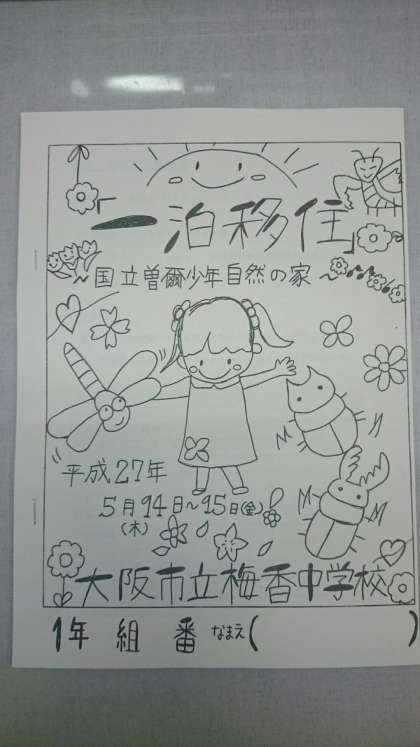 「一泊移住」
～国立曽爾少年自然の家～
平成27年
5月14日～15日(金)
(木)
大阪市立梅香中学校
1年 組 番 なまえ( )